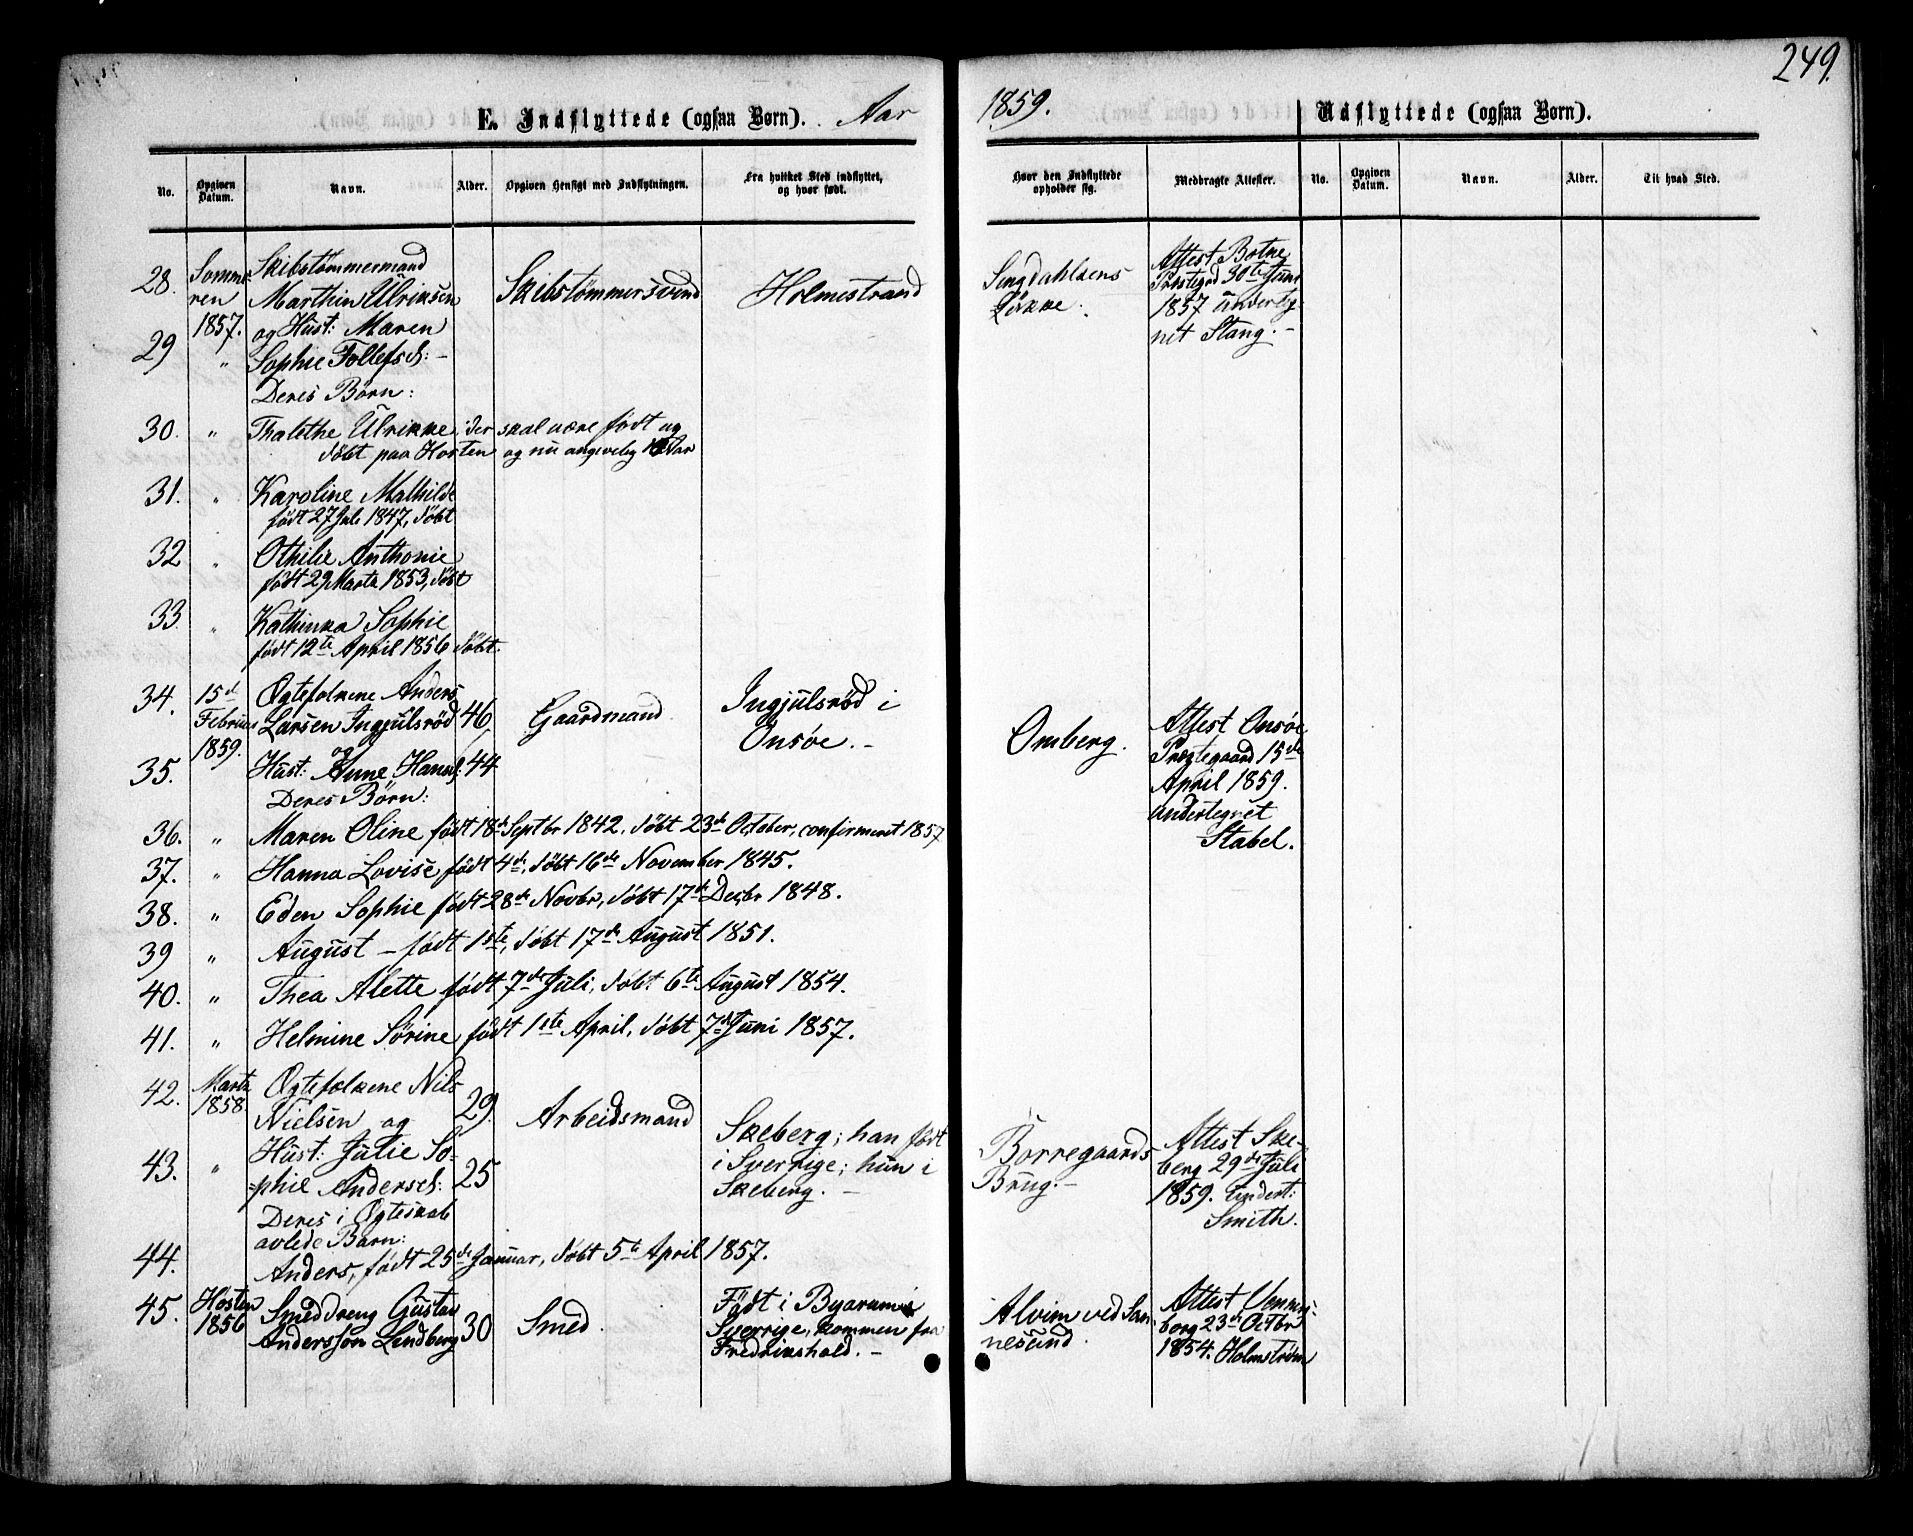 249.
E. Indflyttede (ogsaa Børn). Aar 1859. Udflyttede (ogsaa Børn).
No. Opgiven Datum. Navn. Alder. Opgiven Hensigt med Indflytningen. Fra hvilket Sted indflyttet, og hvor født. Hvor den Indflyttede opholder sig. Medbragte Attester. No. Opgiven Datum. Navn. Alder. Til hvad Sted.
28. Somme- Skibstömmermand Attest Botne
ren Marthin Ulriksen Skibstömmersvend Holmestrand Præstegrd 30te Juni
1857. og Hust: Maren Løkke. 1857 underteg-
29 " Sophie Tollefsd: - net Stang. -
Deres Børn:
30. " Thalethe Ulrikke, der skal være født og
döbt paa Horten og nu angivelig Aar
31. " Karoline Mathilde
født 27 Juli 1847, döbt
32 " Othilie Anthonie
født 29 Marts 1853, döbt
33 " Kathinka Sophie
født 12te April 1856 döbt.
34. 15de Ægtefolkene Anders Ingjulsröd i Attest Onsøe
Februar Larsen Ingjulsröd 46 Gaardmand Onsøe. - Omberg. Præstegaard 15de
1859. og April 1859.
35. Hust: Anne Hansd: 44 undertegnet
Deres Börn: Stabel.
36. " Maren Oline født 18de Septbr 1842, döbt 23de October, confirmeret 1857
37. " Hanna Lovise født 4de, döbt 16de November 1845.
38. " Eden Sophie født 28de Novbr, döbt 17de Decbr 1848.
39 " August - født 1ste, döbt 17de August 1851.
40. " Thea Alette født 7de Juli, döbt 6te August 1854.
41. " Helmine Sörine født 1ste April, döbt 7de Juni 1857.
42. Marts Ægtefolkene Nils
1858. Nielsen og 29. Arbeidsmand Skeberg; han født Borregaards Attest Ske-
43. " Hust: Julie So- i Sverrige; hun i Brug. - berg 29de Juli
-phie Andersd: 25 Skeberg. - 1859. Undert:
Deres i Ægteskab Smith.
avlede Barn:
44. Anders, født 25de Januar, döbt 5te April 1857.
45. Hosten Smeddreng Gustav Födt i Byarum i Alvim ved San- Attest Venners-
1856 Andersson Lindberg 30 Smed. Sverrige, kommen fra nesund. borg 23de Octbr
Fredrikshald. - 1854. Holmström